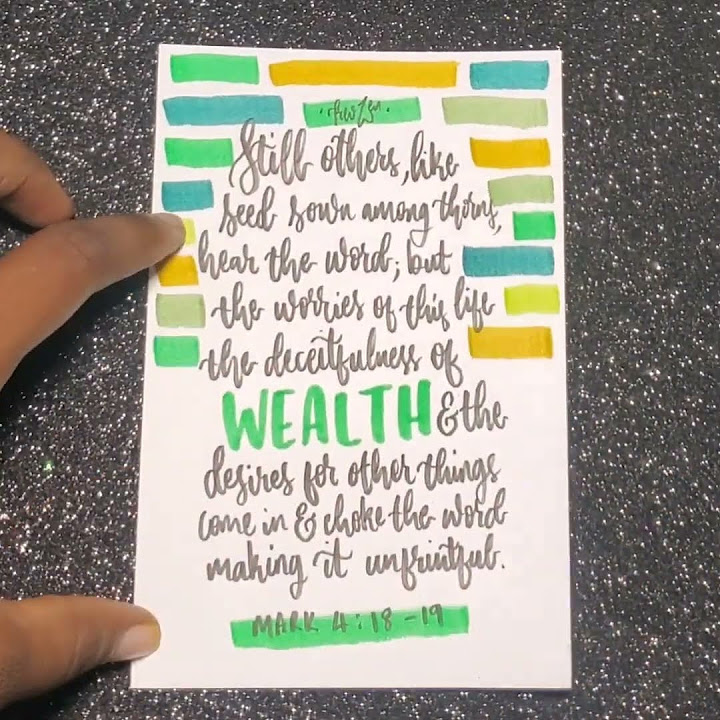 Still others, like
seed sown among thorns,
hear the word; but
the worries of this life
the deceitfulness of
WEALTH & the
desires for other things
come in & choke the word
making it unfruitful.
MARK 4:18-19